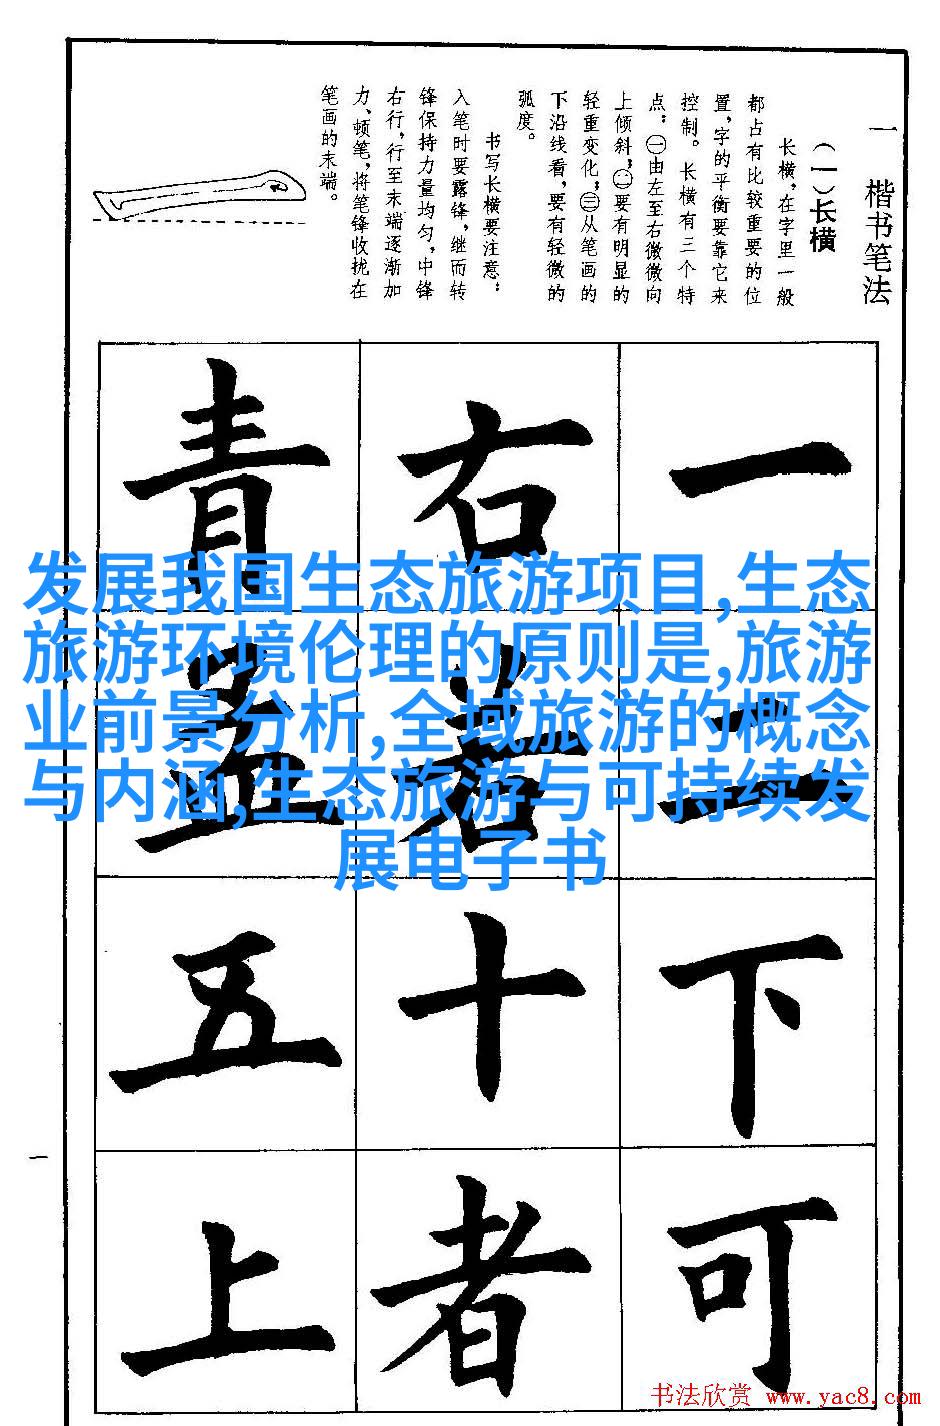 一 楷书笔法
(一)长横
长横,在字里一般
都占有比较重要的位
置,字的平衡要靠它来
控制。长横有三个特
点:㊀由左至右微微向
上倾斜;㊁要有明显的
轻重变化;㊂从笔画的
下沿线看,要有轻微的
弧度。
书写长横要注意:
入笔时要露锋,继而转
锋保持力量均匀,中锋
右行,行至末端逐渐加
力、顿笔,将笔锋收拢在
笔画的末端。
一二下可
右若十者
青孟五上
发展我国生态旅游项目,生态
旅游环境伦理的原则是,旅游
业前景分析,全域旅游的概念
与内涵,生态旅游与可持续发
展电子书
一
书法欣赏 www.yac8.com